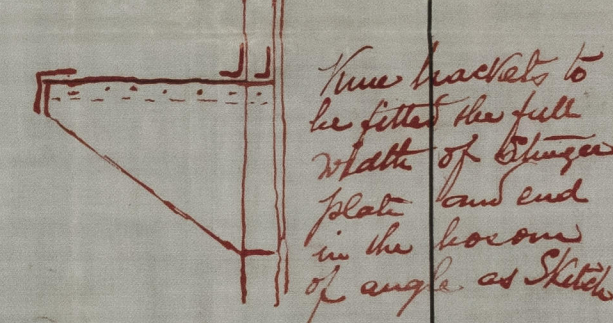 Knee brackets to
be fitted the full
width of Stringer
plate and end
in the bosom
of angle as Sketch